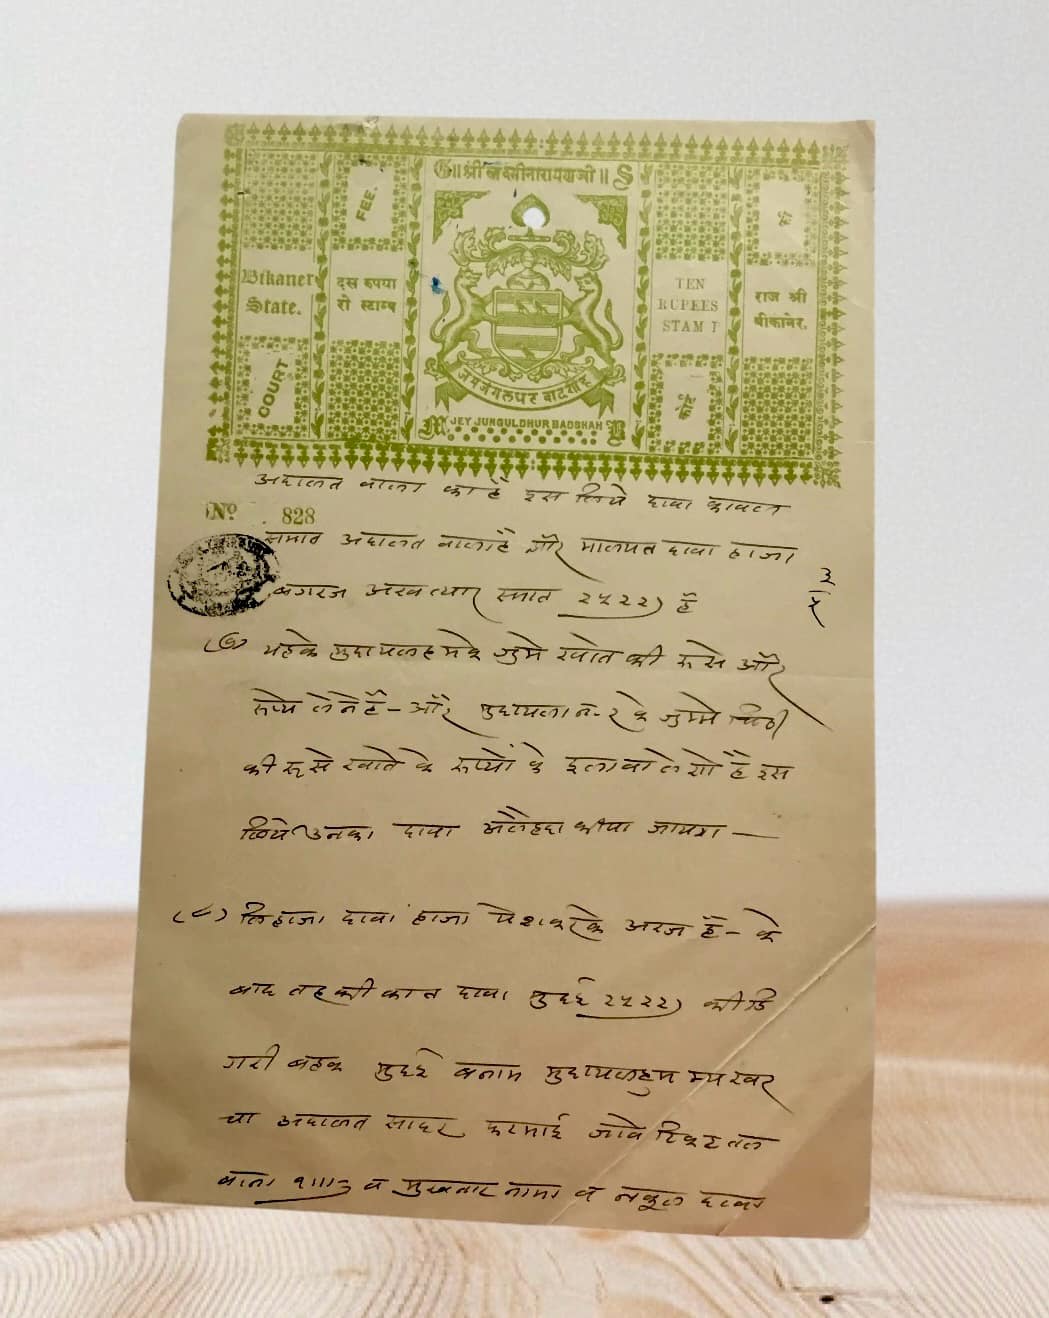 ॥ श्री लक्ष्मीनारायणजी ॥
FEE.
Bikaner State.
दस रुपया रो स्टाम्प
TEN RUPEES STAMP
राज श्री बीकानेर.
COURT
जयजंगलधर बादशाह
JEY JUNGULDHUR BADSHAH
अदालत वाला का है इस लिये दावा काबल
No. 828
समात अदालत वाला है और मालयत दावा हाजा
बगरज अखत्यार समात २५२२) है
३/५
(७) यहके मुदायलहमके जुमे खाते की रूसे और
रुप्ये लेने है - और मुदायला नं-२ के जुम्मे चिठी
की रूसे खाते के रूप्यों के इलावा लेणे है इस
लिये उनका दावा अलैहदा कीया जायगा —
(८) लिहाजा दावा हाजा पेश करके अरज है - के
बाद तहकीकात दावा मुदई २५२२) की डि
गरी बहक मुदई बनाम मुदायलहुम मय खर
चा अदालत सादर फरमाई जावे टिकट तल
बाना १।।।) व मुखतार नामा व नकूल दावा